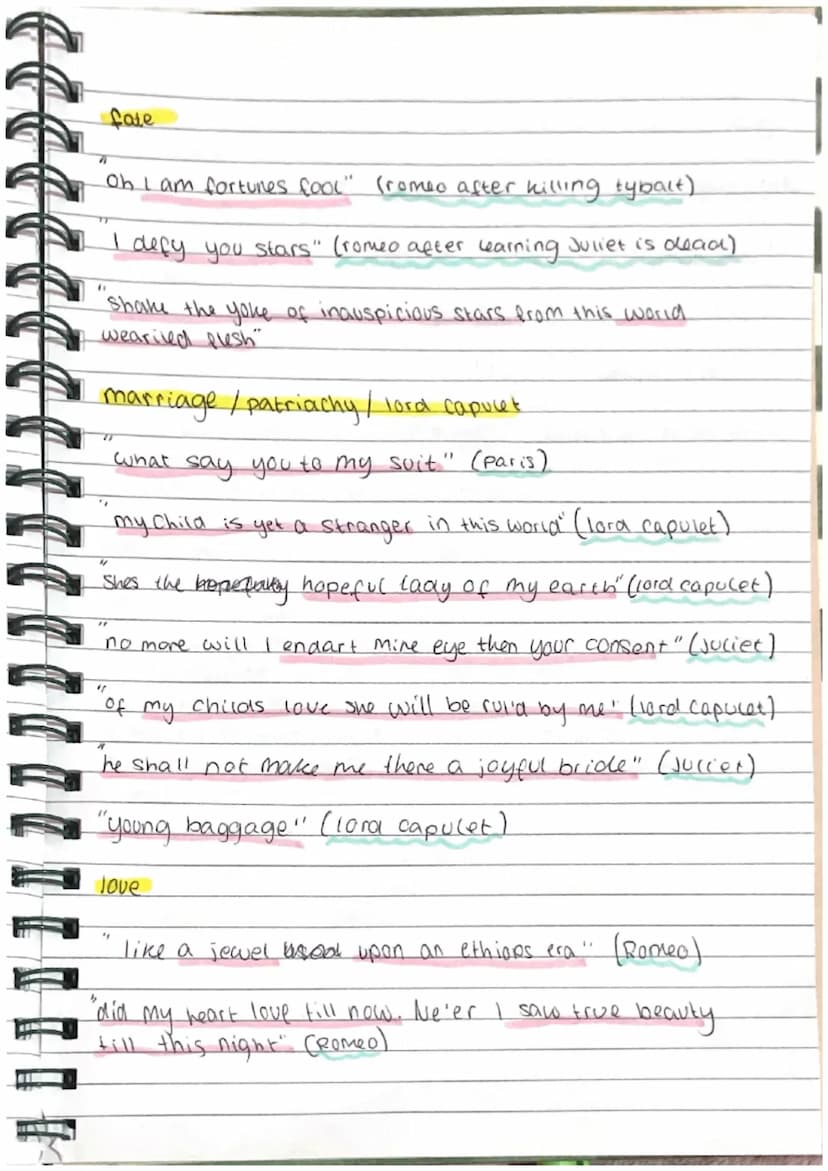 fate
"Oh I am fortunes fool" (romeo after killing tybalt)
"I defy you stars" (romeo after learning Juliet is dead)
"shake the yoke of inauspicious stars from this world
wearied flesh"
marriage / patriachy / lord capulet
"what say you to my suit" (paris)
"my child is yet a stranger in this world" (lord capulet)
"shes the hopeful lady of my earth" (lord capulet)
"no more will I endart mine eye then your consent" (Juliet)
"of my childs love she will be rul'd by me" (lord capulet)
"he shall not make me there a joyful bride" (Juliet)
"young baggage" (lord capulet)
love
"like a jewel upon an ethiops era" (Romeo)
"did my heart love till now. Ne'er I saw true beauty
till this night" (Romeo)